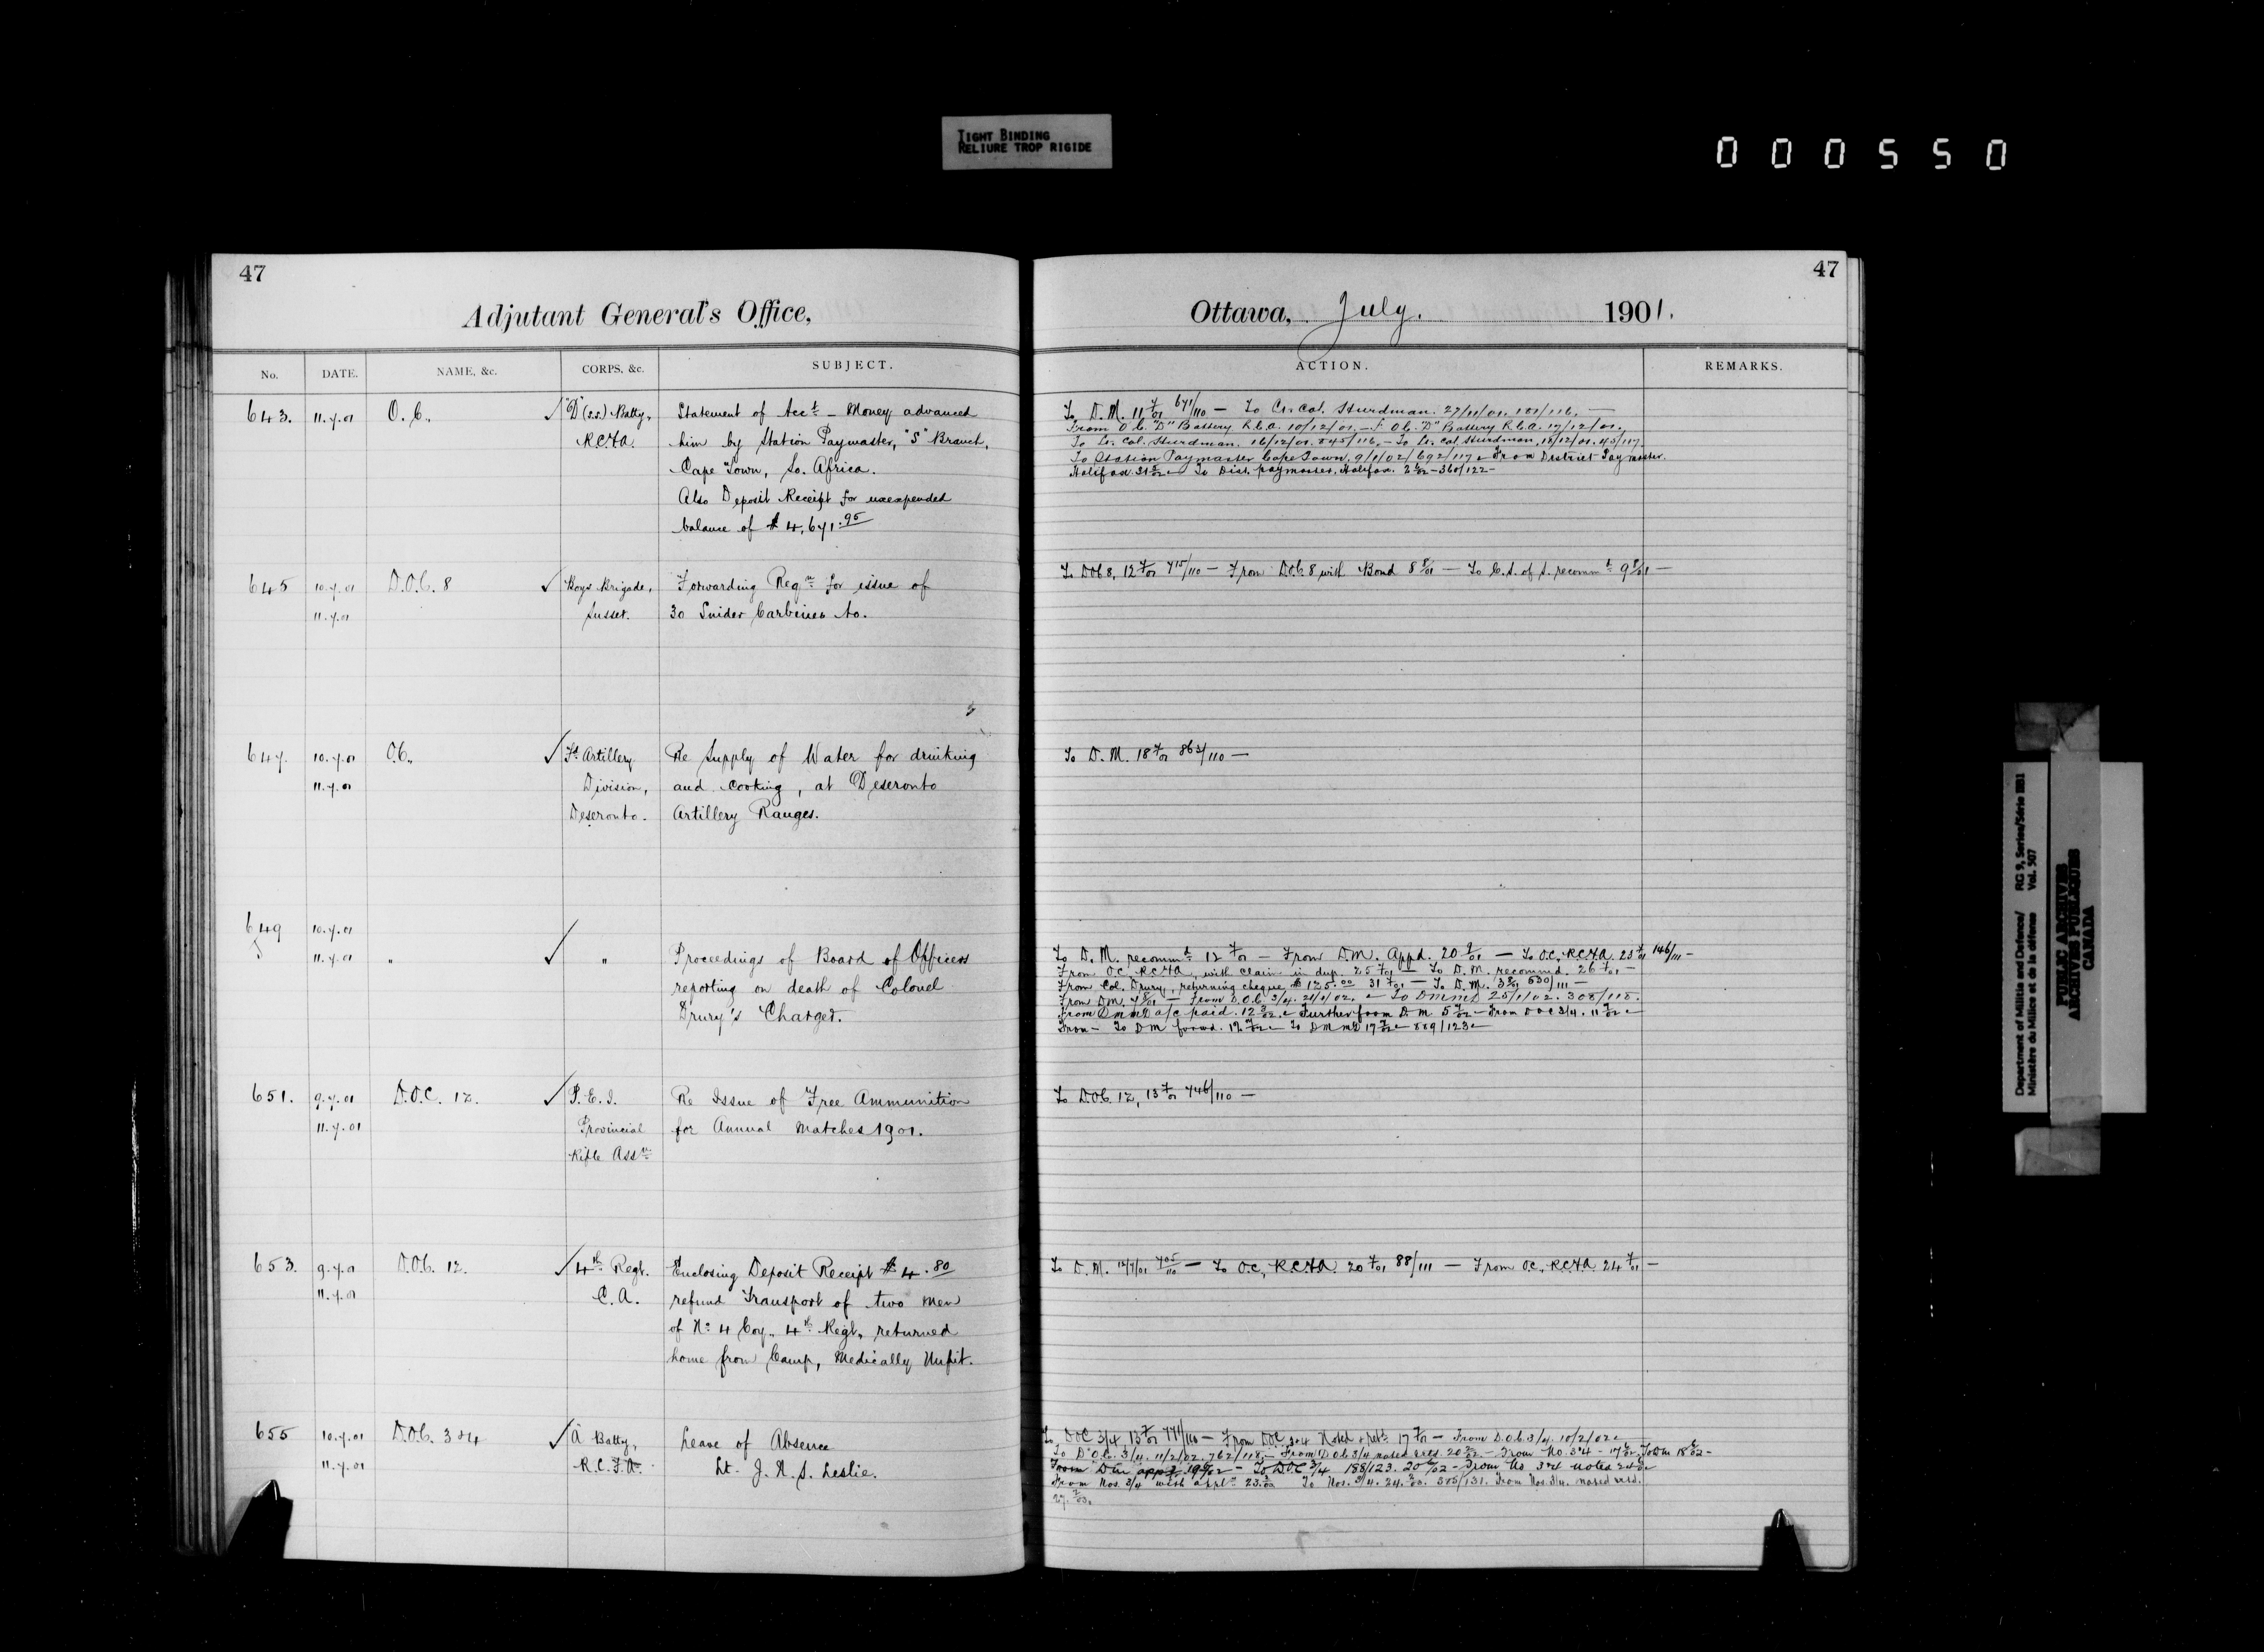 TIGHT BINDING
RELIURE TROP RIGIDE
000550
47
Adjutant General's Office,
No. DATE. NAME, &c. CORPS, &c. SUBJECT.
643. 11.7.01 O.C., √ "D" (2.S.) Batty, Statement of Acct - Money advanced
R.C.F.A. him by Station Paymaster, "S" Branch,
Cape Town, So. Africa.
Also Deposit Receipt for unexpended
balance of $4,671.95
645 10.7.01 D.O.C. 8 √ Boys Brigade, Forwarding Reqn for issue of
11.7.01 Sussex. 30 Snider Carbines &c.
647. 10.7.01 O.C., √ Fd Artillery Re Supply of Water for drinking
11.7.01 Division, and cooking, at Deseronto
Deseronto. Artillery Ranges.
649 10.7.01
11.7.01 " √ " Proceedings of Board of Officers
reporting on death of Colonel
Drury's Charger.
651. 9.7.01 D.O.C. 12. √ P.E.I. Re Issue of Free Ammunition
11.7.01 Provincial for Annual Matches 1901.
Rifle Assn
653. 9.7.01 D.O.C. 12. √ 4th Regt. Enclosing Deposit Receipt $4.80
11.7.01 C.A. refund Transport of two men
of No 4 Coy., 4th Regt., returned
home from Camp, Medically Unfit.
655 10.7.01 D.O.C. 3&4 √ A Batty, Leave of Absence
11.7.01 R.C.F.A. Lt. J.N.S. Leslie.
47
Ottawa, July. 1901.
ACTION. REMARKS.
To D.M. 11 7/01 671/110 — To Lt. Col. Hurdman. 27/11/01. 181/116. —
From O.C. "D" Battery R.C.A. 10/12/01. — F. O.C. "D" Battery R.C.A. 17/12/01.
To Lt. Col. Hurdman. 16/12/01. 845/116. — To Lt. Col. Hurdman, 18/12/01. 45/117.
To Station Paymaster Cape Town, 9/1/02/692/117 From District Paymaster.
Halifax To Dist. paymaster, Halifax. 360/122 —
To DOC 8, 12 7/01 715/110 — From DOC 8 with Bond 8 8/01 — To C.S. of S. recommd 9 8/01 —
To D.M. 18 7/01 863/110 —
To D.M. recommd 12 7/01 — From D.M. Appd. 20 — To O.C. R.C.F.A. 23 7/01 146/111 —
From O.C. R.C.F.A., with claim in dup. 25 7/01 — To D.M. recommd. 26 7/01 —
From Col. Drury, returning cheque, $125.00 31 7/01 — To D.M. 3 8/01 530/111 —
From DM. 7 8/01 — From D.O.C. 3/4. To DMMD 25/1/02. 308/118.
From DMMD a/c paid. 12 Further from DM. 5 From DOC 3/4. 11
From — To DM forwd. 12 To DMMD 17 889/123
To DOC. 12, 13 7/01 746/110 —
To D.M. 12/7/01 705/110 — To O.C, R.C.F.A. 20 7/01 88/111 — From O.C, R.C.F.A. 24 7/01 —
To DOC 3/4 13 7/01 771/110 — From DOC 3&4 Noted & retd 17 7/01 — From D.O.C. 3/4. 10/2/02
To D.O.C. 3/4. 11/2/02. 762/118. — From D.O.C. 3/4 noted retd 20 — From No. 3&4 — 17 To DM 18
From DM appd 19 To D.O.C 3/4 188/123. 20 — From No 3&4 noted 24
From Nos. 3/4 with appln 23 To Nos. 3/4. 24. 385/131. From Nos. 3/4. noted retd.
27.
Department of Militia and Defence/ RG 9, Series/Série IIB1
Ministère du Milice et de la défense Vol. 507
PUBLIC ARCHIVES
ARCHIVES PUBLIQUES
CANADA